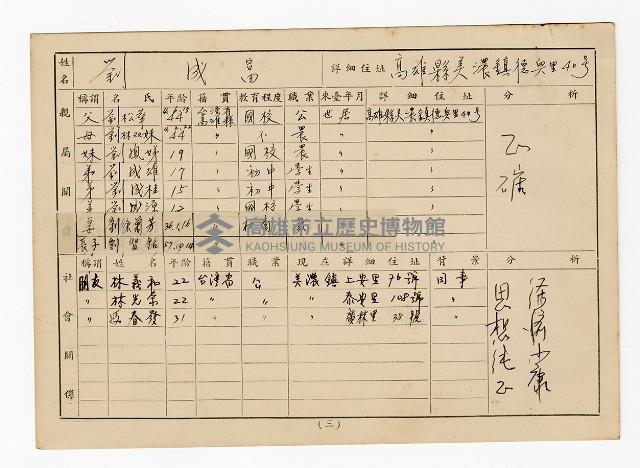 姓名 劉 成 富 詳細住址 高雄縣美濃鎮德興里40号
親屬關係 稱謂 名 氏 年齡 籍貫 教育程度 職業 來臺年月 詳細住址 分析
父 劉松華 44 台灣省高雄縣 國校 公 世居 高雄縣美濃鎮德興里40号
母 劉林双妹 44 〃 不 農 〃 〃
妹 劉 妹 19 〃 國校 農 〃 〃
弟 劉成雄 17 〃 初中 學生 〃 〃
弟 劉成桂 15 〃 初中 學生 〃 〃
弟 劉成源 12 〃 國校 學生 〃 〃
妻 劉徐菊芳 36.1.16 〃
長子 劉智銘 57.10.14
正確
高雄市立歷史博物館
KAOHSIUNG MUSEUM OF HISTORY
社會關係 稱謂 姓 名 年齡 籍貫 職業 現在詳細住址 背景 分析
朋友 林義和 22 台灣省 公 美濃鎮上安里76號 同事
〃 林光榮 22 〃 〃 〃 泰安里108號 〃
〃 馮春發 31 〃 〃 〃 廣林里38號 〃
經濟小康
思想純正
(三)